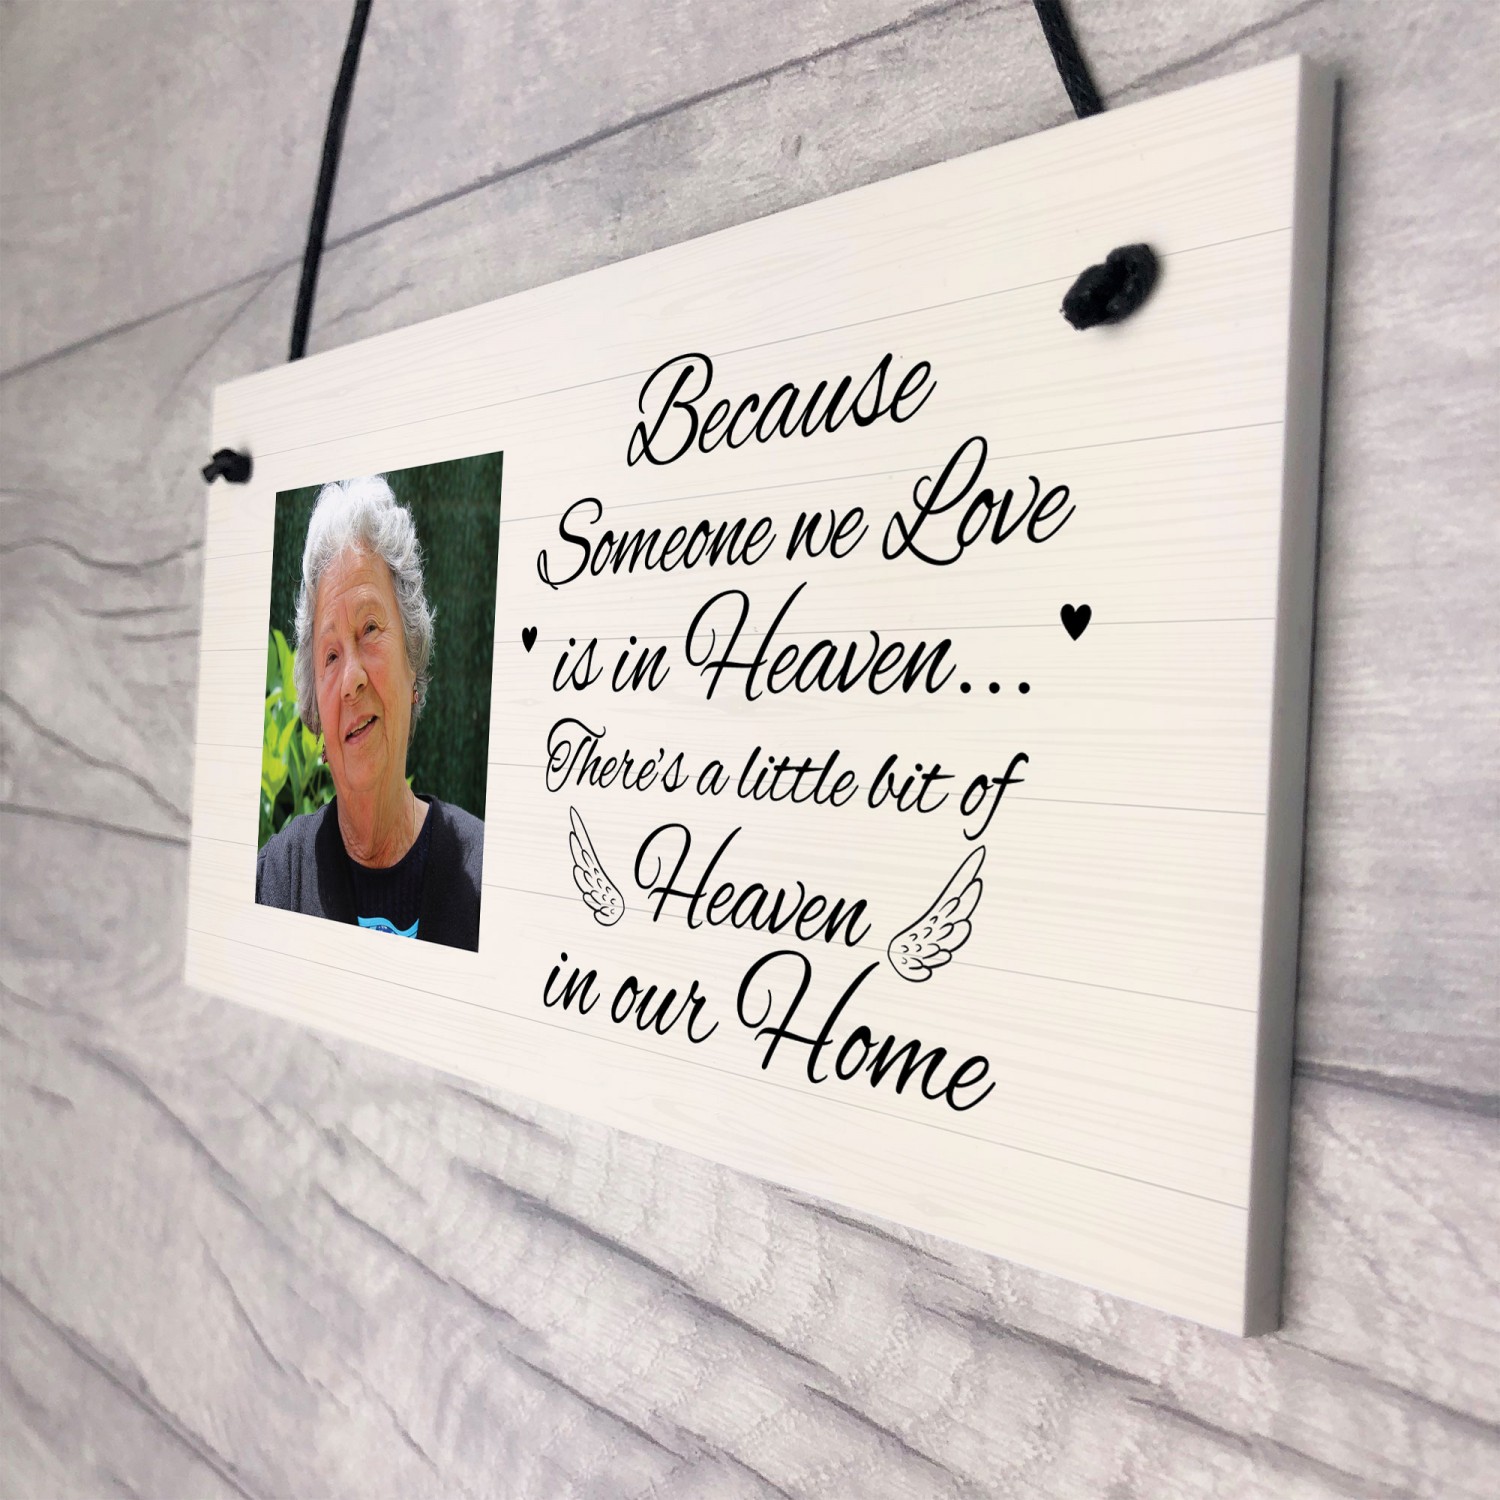 Because
Someone we Love
is in Heaven...
There's a little bit of
Heaven
in our Home